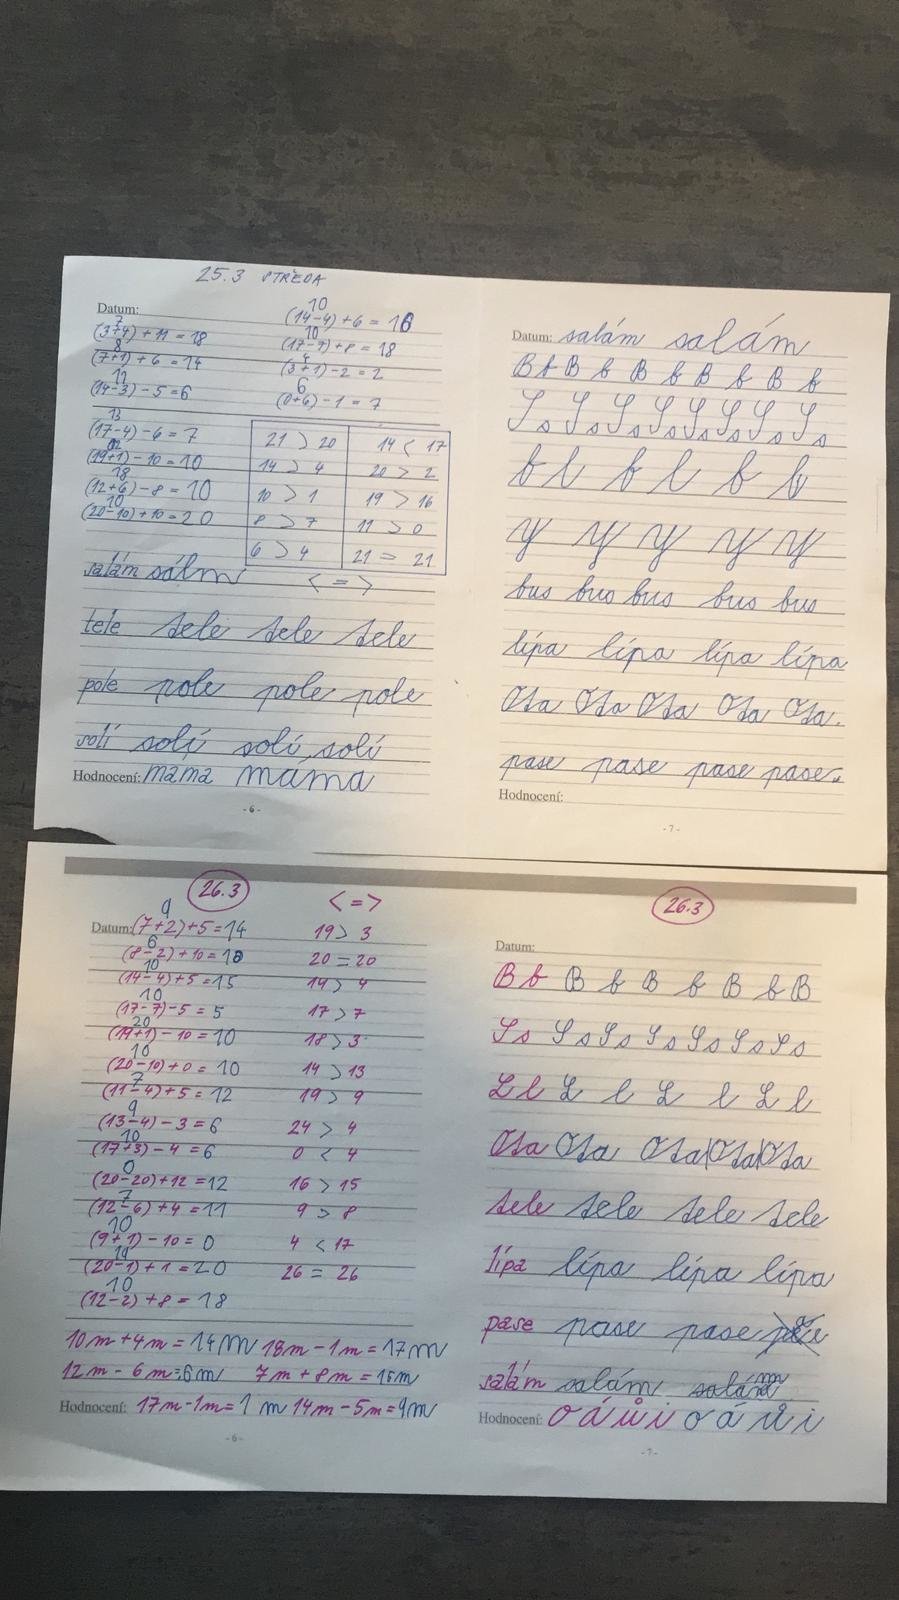 25.3 STŘEDA
Datum:
7
(3+4) + 11 = 18
8
(7+1) + 6 = 14
11
(14-3) - 5 = 6
13
(17-4) - 6 = 7
(19+1) - 10 = 10
18
(12+6) - 8 = 10
10
(20-10) + 10 = 20
10
(14-4) + 6 = 16
10
(17-7) + 8 = 18
4
(3+1) - 2 = 2
6
(0+6) - 1 = 7
21 > 20 14 < 17
14 > 4 20 > 2
10 > 1 19 > 16
8 > 7 11 > 0
6 > 4 21 = 21
< = >
salám sálm
tele tele tele tele
pole pole pole pole
solí solí solí solí
Hodnocení: máma máma
- 6 -
Datum: salám salám
B b B b B b B b B b
S s S s S s S s S s S s S s
b l b l b b
y y y y y
bus bus bus bus bus
lípa lípa lípa lípa
Ota Ota Ota Ota Ota.
pase pase pase pase.
Hodnocení:
- 7 -
26.3
< = >
Datum:
9
(7+2) + 5 = 14
6
(8-2) + 10 = 18
10
(14-4) + 5 = 15
10
(17-7) - 5 = 5
20
(19+1) - 10 = 10
10
(20-10) + 0 = 10
7
(11-4) + 5 = 12
9
(13-4) - 3 = 6
10
(17+3) - 4 = 6
0
(20-20) + 12 = 12
7
(12-6) + 4 = 11
10
(9+1) - 10 = 0
19
(20-1) + 1 = 20
10
(12-2) + 8 = 18
19 > 3
20 = 20
14 > 4
17 > 7
18 > 3
14 > 13
19 > 9
24 > 4
0 < 4
16 > 15
9 > 8
4 < 17
26 = 26
10m + 4m = 14m 18m - 1m = 17m
12m - 6m = 6m 7m + 8m = 15m
Hodnocení: 17m - 1m = 1 m 14m - 5m = 9m
- 6 -
26.3
Datum:
B b B b B b B b B
S s S s S s S s S s S s S s
L l L l L l L l
Ota Ota Ota Ota Ota
tele tele tele tele
lípa lípa lípa lípa
pase pase pase
salám salám salám
Hodnocení: o á ů i o á ů i
- 7 -